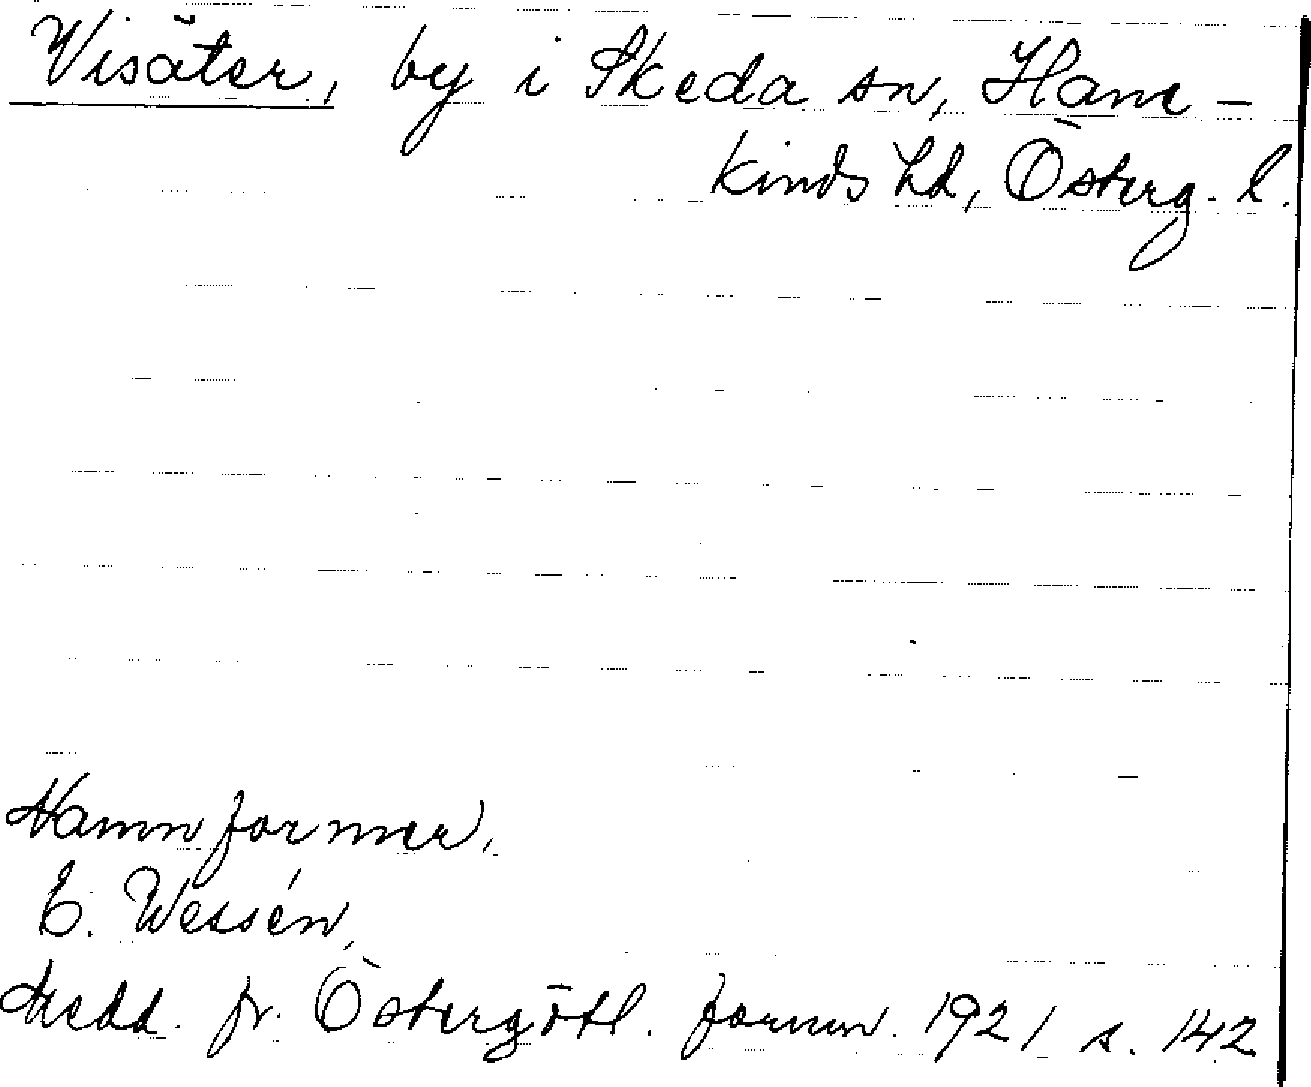 Visäter, by i Skeda sn, Hane-
kinds hd, Österg. l.
Namnformer.
E. Wessén,
Medd. fr. Östergötl. fornm. 1921 s. 142